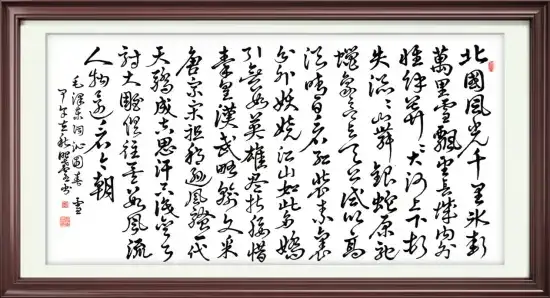 北國風光千里冰封
萬里雪飄望長城內外
惟餘莽々大河上下頓
失滔々山舞銀蛇原馳
蠟象欲與天公試比高
須晴日看紅裝素裹
分外妖嬈江山如此多嬌
引無數英雄競折腰惜
秦皇漢武略輸文采
唐宗宋祖稍遜風騷一代
天驕成吉思汗只識彎弓
射大雕俱往矣數風流
人物還看今朝
毛澤東詞沁園春雪
甲午秋書